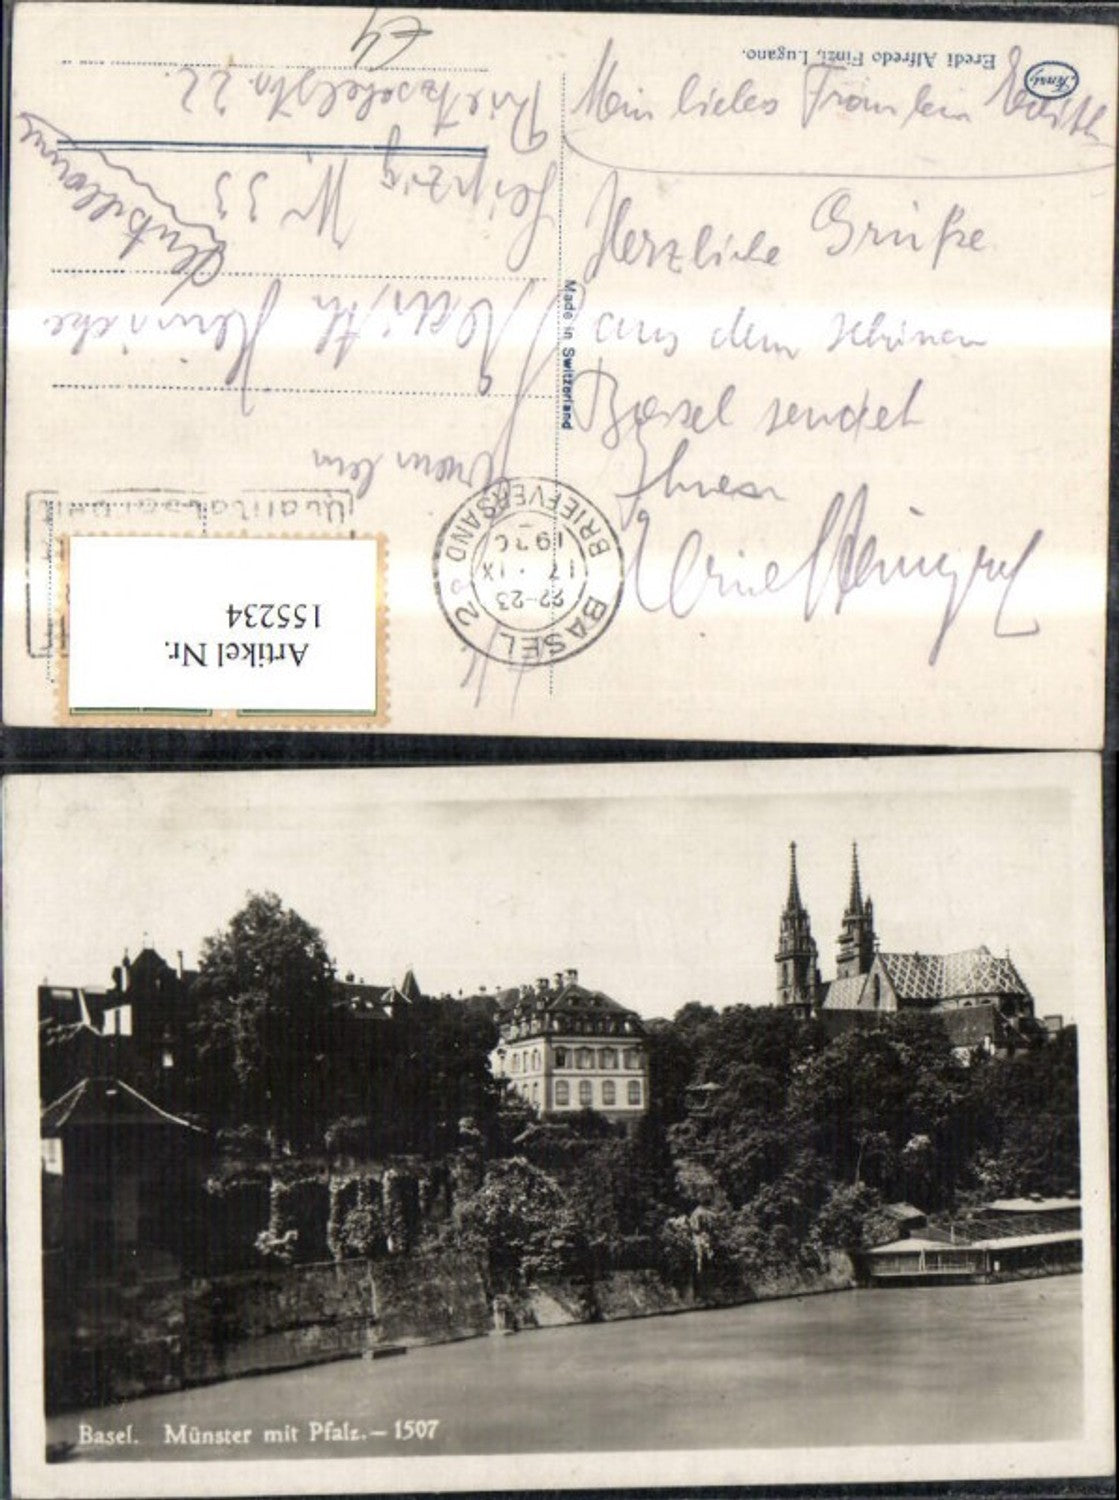 Eredi Alfredo Finzi, Lugano.
Mein liebes Fräulein Edith
Herzliche Grüße
aus dem schönen
Basel sendet
Ihnen
Made in Switzerland
BASEL 2
BRIEFVERSAND
17. IX
1936
22-23
Fräulein
Edith
Leipzig W 33
22
Artikel Nr.
155234
Basel. Münster mit Pfalz. – 1507